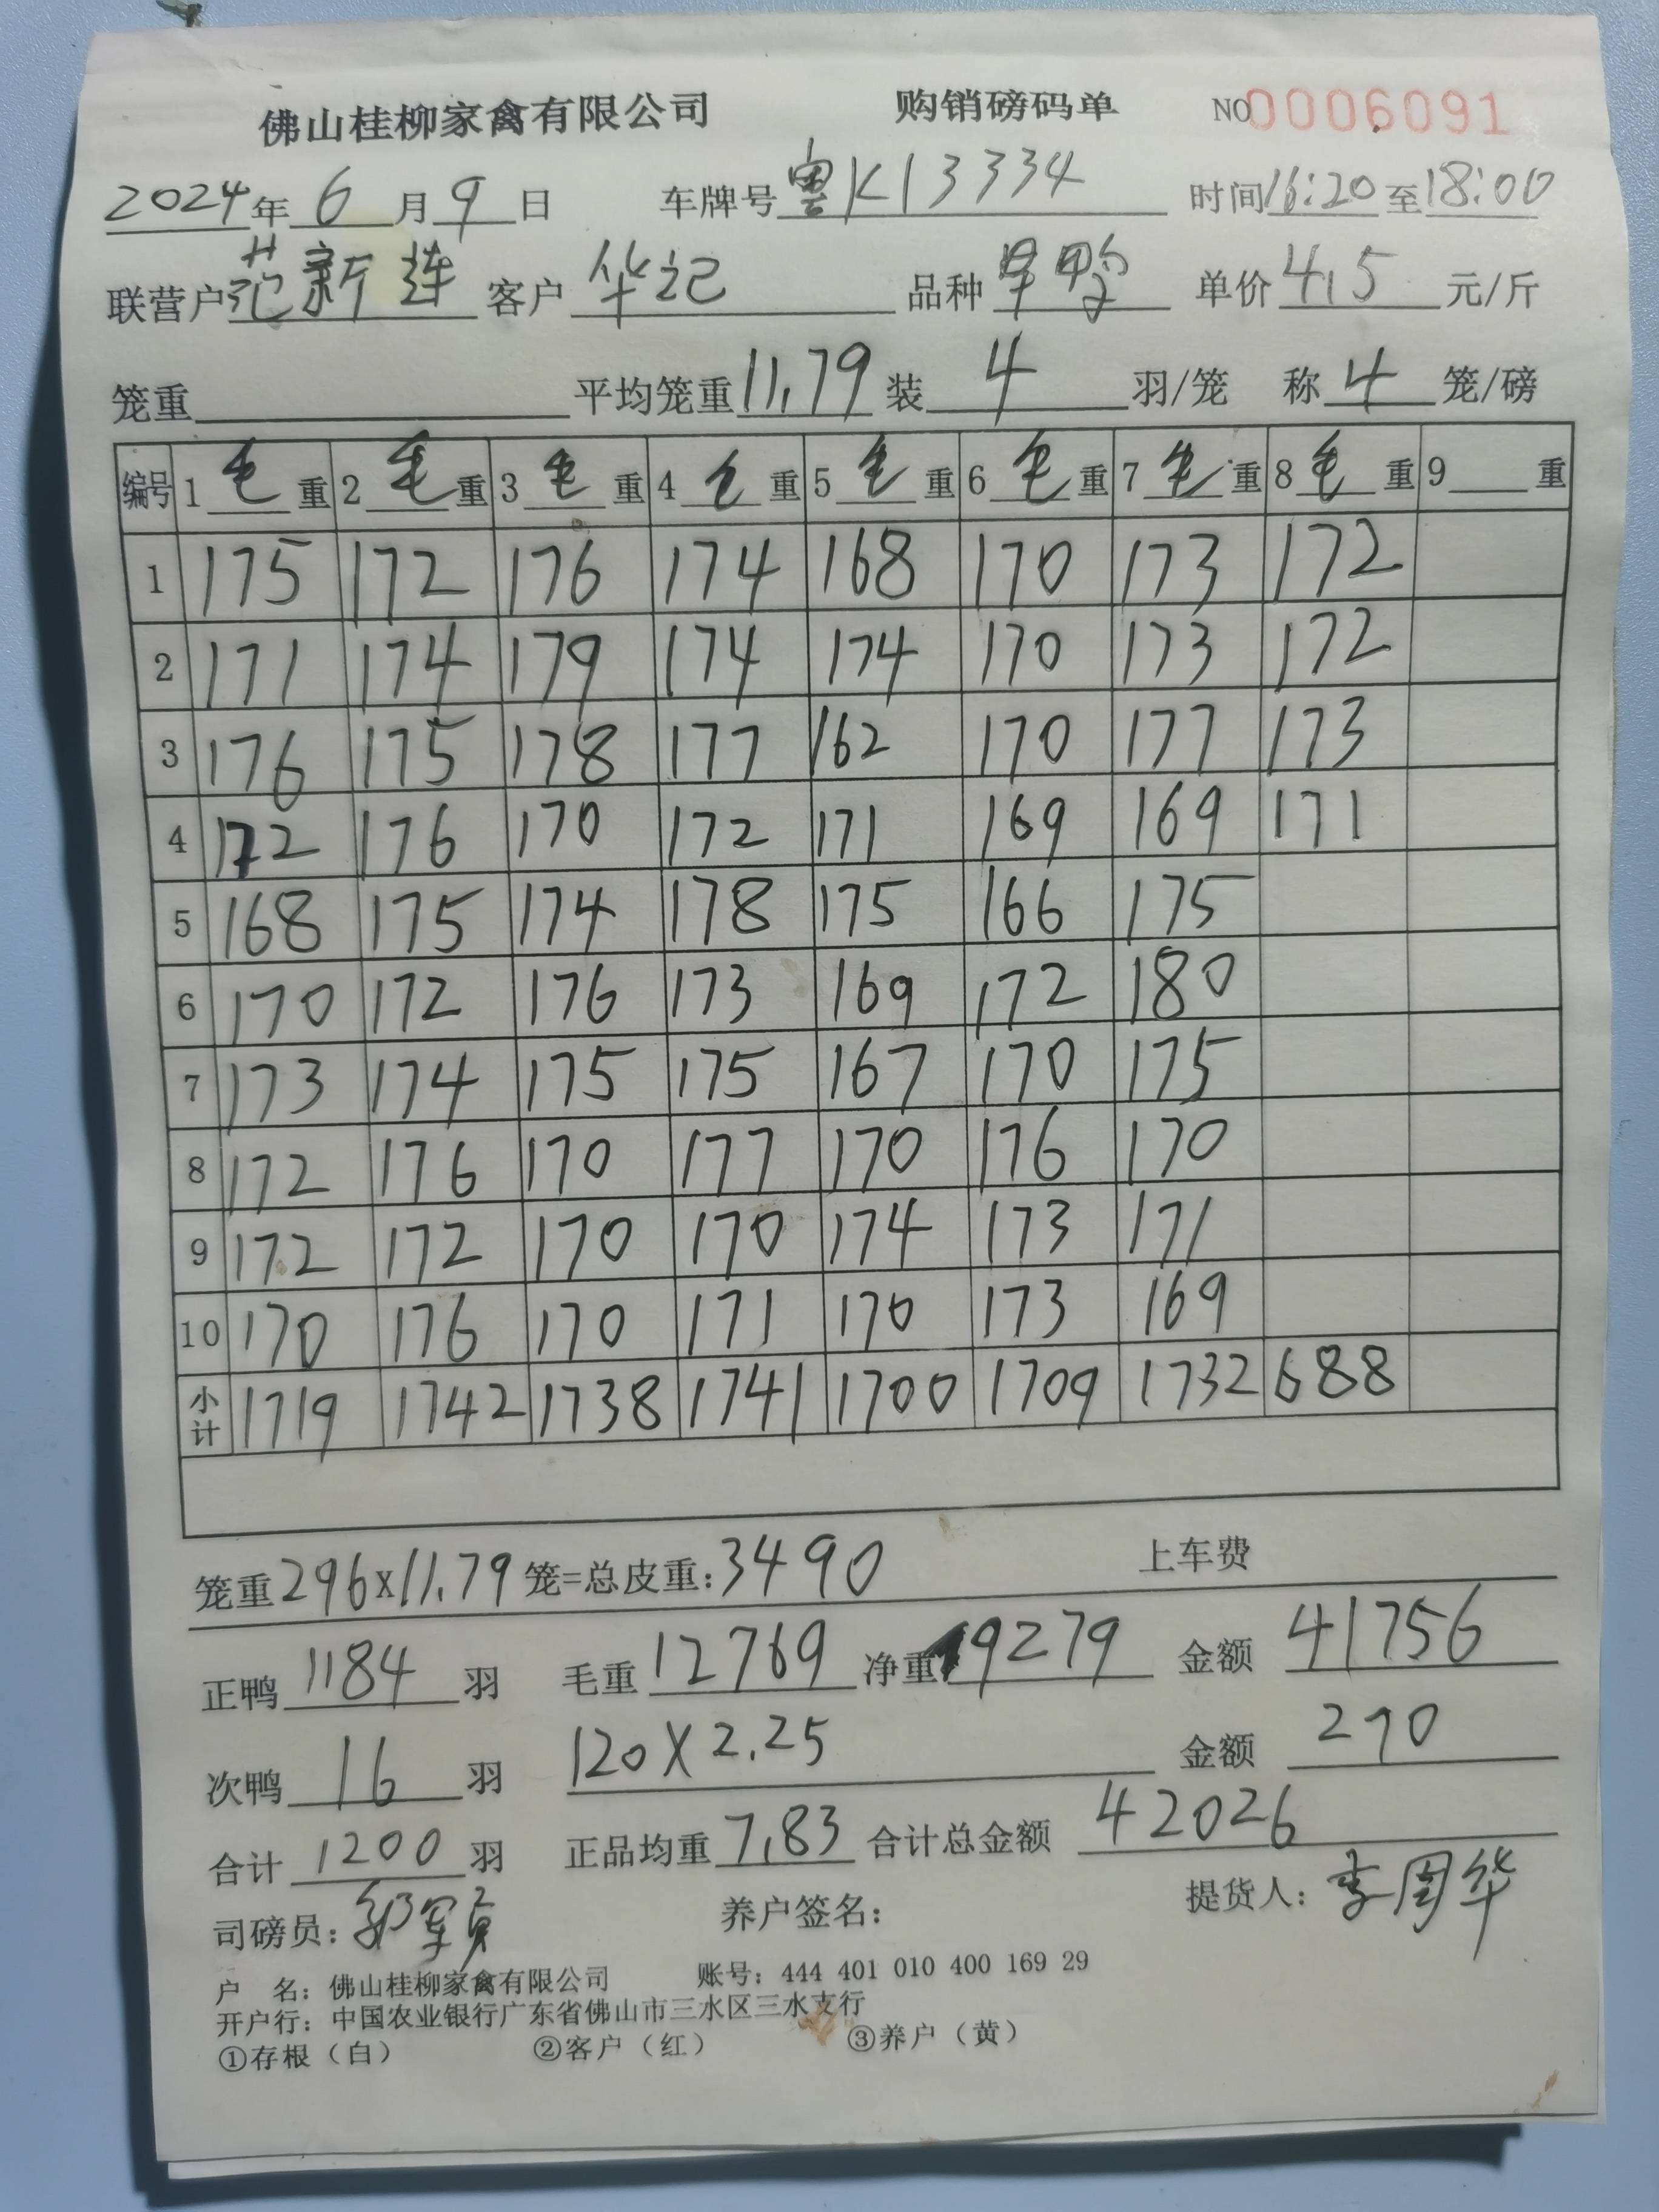 佛山桂柳家禽有限公司 购销磅码单 NO 0006091
2024年 6 月 9 日 车牌号 粤K13334 时间 16:20 至 18:00
联营户 范新莲 客户 华记 品种 旱鸭 单价 4.5 元/斤
笼重 平均笼重 11.79 装 4 羽/笼 称 4 笼/磅
编号 1 毛 重 2 毛 重 3 毛 重 4 毛 重 5 毛 重 6 毛 重 7 毛 重 8 毛 重 9 重
1 175 172 176 174 168 170 173 172
2 171 174 179 174 174 170 173 172
3 176 175 178 177 162 170 177 173
4 172 176 170 172 171 169 169 171
5 168 175 174 178 175 166 175
6 170 172 176 173 169 172 180
7 173 174 175 175 167 170 175
8 172 176 170 177 170 176 170
9 172 172 170 170 174 173 171
10 170 176 170 171 170 173 169
小计 1719 1742 1738 1741 1700 1709 1732 688
笼重 296×11.79 笼=总皮重: 3490 上车费
正鸭 1184 羽 毛重 12769 净重 9279 金额 41756
次鸭 16 羽 120×2.25 金额 270
合计 1200 羽 正品均重 7.83 合计总金额 42026
司磅员: 养户签名: 提货人: 李周华
户 名: 佛山桂柳家禽有限公司 账号: 444 401 010 400 169 29
开户行: 中国农业银行广东省佛山市三水区三水支行
①存根（白） ②客户（红） ③养户（黄）